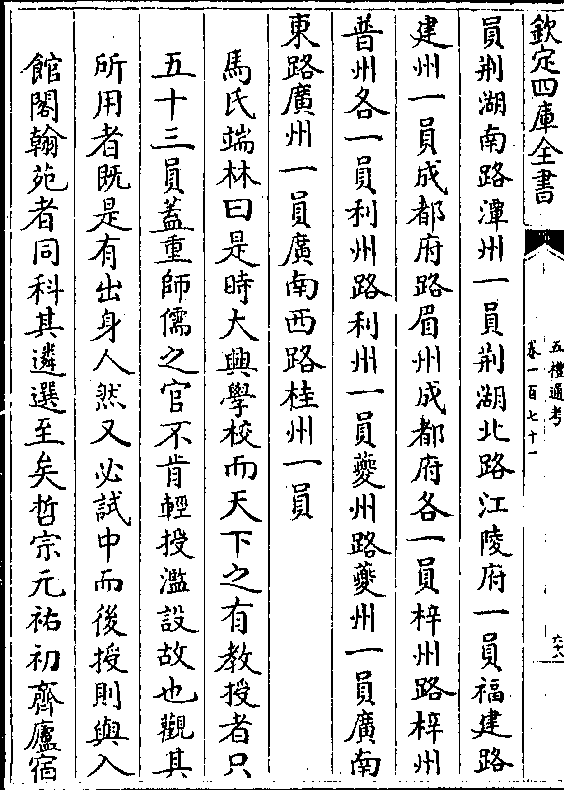 欽定四庫全書
五禮通考
卷一百七十一
六六
員荆湖南路潭州一員荆湖北路江陵府一員福建路
建州一員成都府路眉州成都府各一員梓州路梓州
普州各一員利州路利州一員夔州路夔州一員廣南
東路廣州一員廣南西路桂州一員
馬氏端林曰是時大興學校而天下之有教授者只
五十三員蓋重師儒之官不肯輕授濫設故也觀其
所用者既是有出身人然又必試中而後授則與入
館閣翰苑者同科其遴選至矣哲宗元祐初齊廬宿